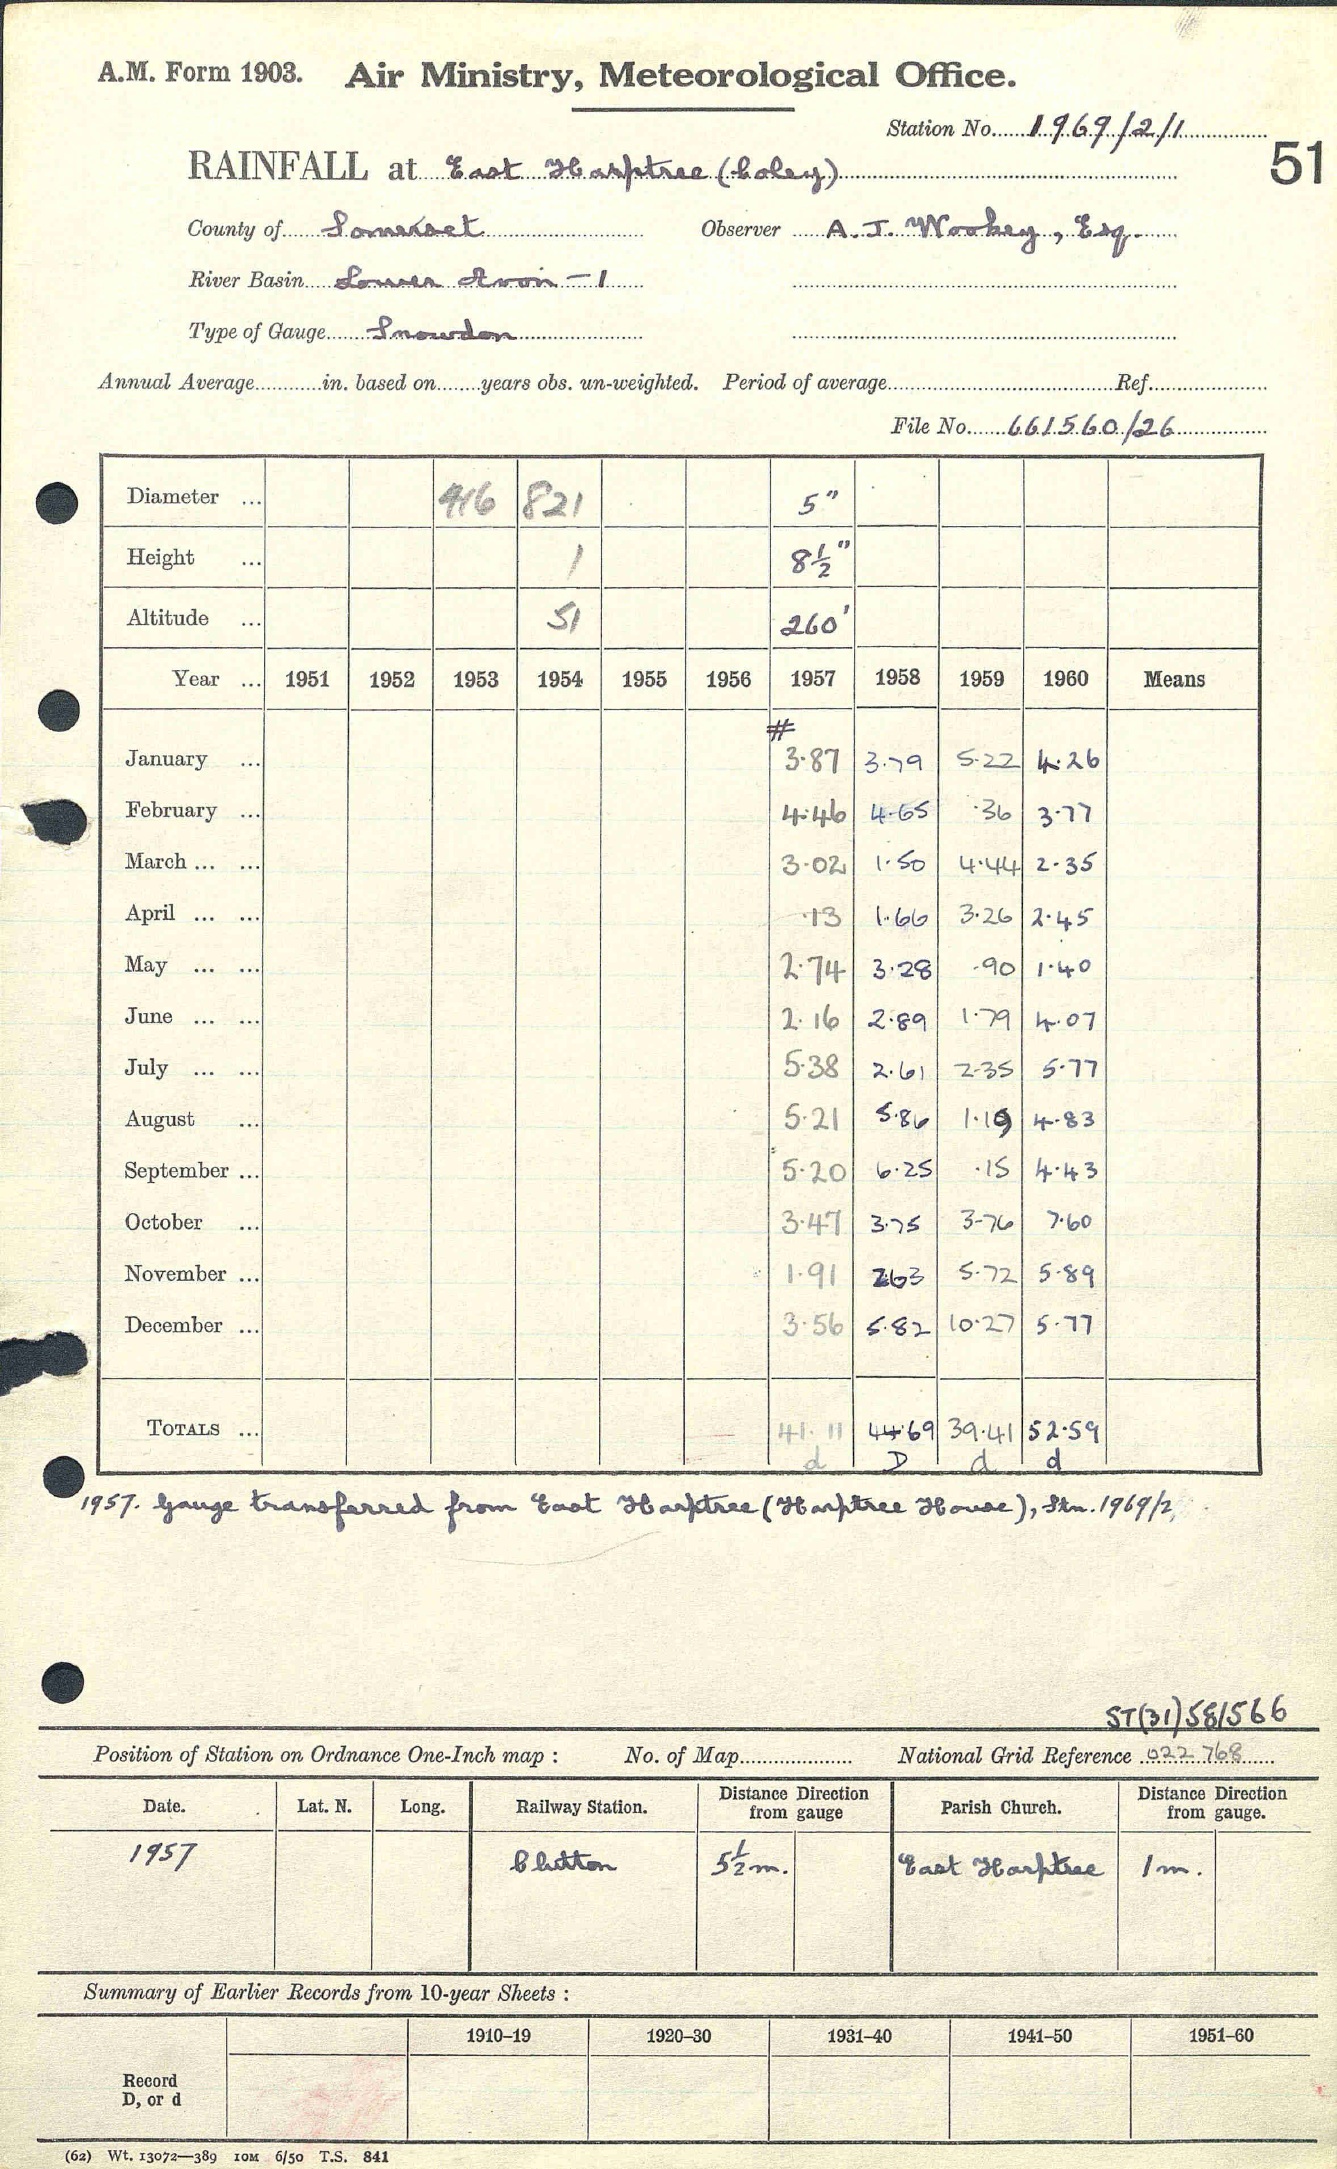 A.M. Form 1903. Air Ministry, Meteorological Office.
Station No. 1969/2/1
51
RAINFALL at East Harptree (Coley)
County of Somerset Observer A. J. Wookey, Esq.
River Basin Lower Avon - 1
Type of Gauge Snowdon
Annual Average in. based on years obs. un-weighted. Period of average Ref.
File No. 661560/26
Diameter ... 916 821 5"
Height ... 1 8½"
Altitude ... 51 260'
Year ... 1951 1952 1953 1954 1955 1956 1957 1958 1959 1960 Means
#
January ... 3.87 3.79 5.22 4.26
February ... 4.46 4.65 .36 3.77
March ... ... 3.02 1.50 4.44 2.35
April ... ... .13 1.66 3.26 2.45
May ... ... 2.74 3.28 .90 1.40
June ... ... 2.16 2.89 1.79 4.07
July ... ... 5.38 2.61 2.35 5.77
August ... 5.21 5.86 1.19 4.83
September ... 5.20 6.25 .15 4.43
October ... 3.47 3.75 3.76 7.60
November ... 1.91 2.63 5.72 5.89
December ... 3.56 5.82 10.27 5.77
TOTALS ... 41.11 44.69 39.41 52.59
d D d d
1957. Gauge transferred from East Harptree (Harptree House), Stn. 1969/2.
ST(31)581566
Position of Station on Ordnance One-Inch map : No. of Map National Grid Reference 022 768
Date. Lat. N. Long. Railway Station. Distance Direction from gauge Parish Church. Distance Direction from gauge.
1957 Clutton 5½ m. East Harptree 1 m.
Summary of Earlier Records from 10-year Sheets :
1910–19 1920–30 1931–40 1941–50 1951–60
Record
D, or d
(62) Wt. 13072—389 10M 6/50 T.S. 841